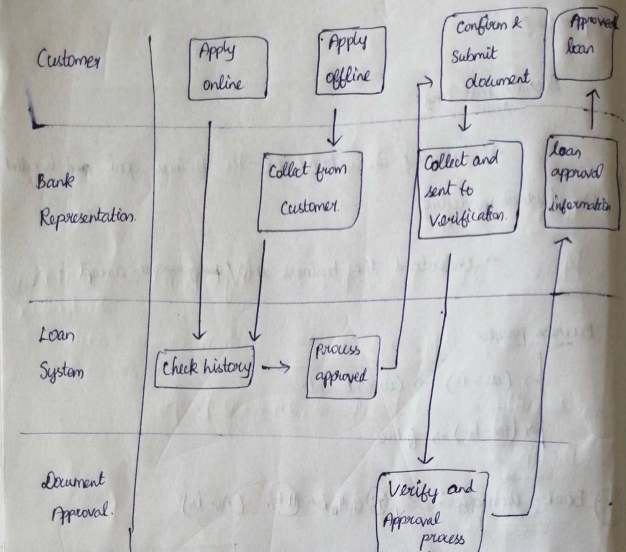 Customer
Apply
online
Apply
offline
Confirm &
Submit
document.
Approved
loan
Bank
Representation.
Collect from
Customer.
Collect and
sent to
Verification.
loan
approval
information
Loan
System
Check history
process
approved
Document
Approval.
Verify and
Approval
process